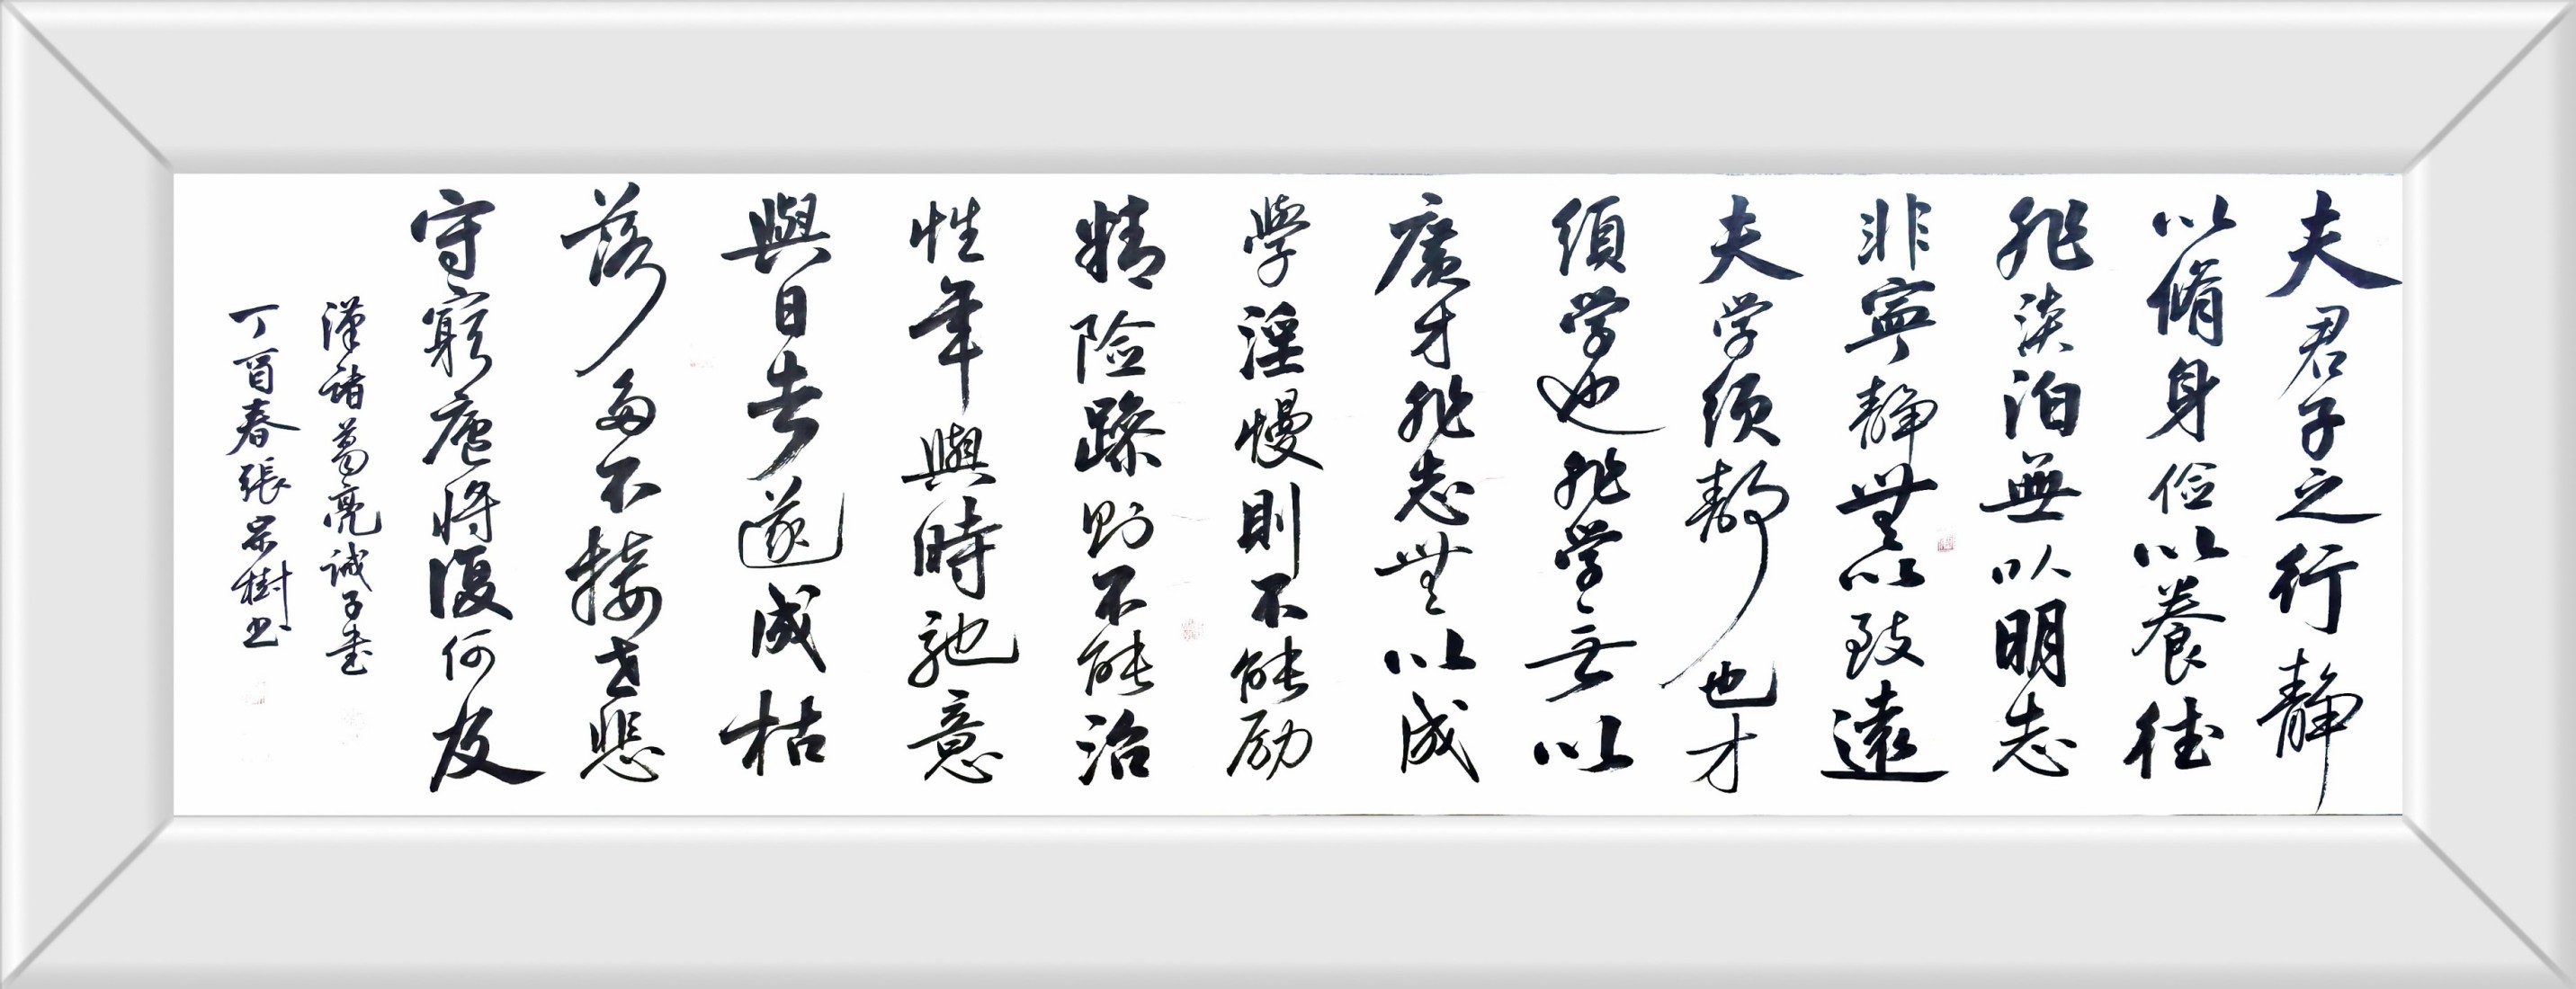 夫君子之行静
以脩身俭以養德
非淡泊無以明志
非寧静無以致遠
夫学须静也才
須学也非学无以
廣才非志無以成
學淫慢則不能励
精险躁則不能治
性年與時馳意
與日去遂成枯
落多不接世悲
守窮廬将復何及
漢諸葛亮诫子書
丁酉春張宗樹书